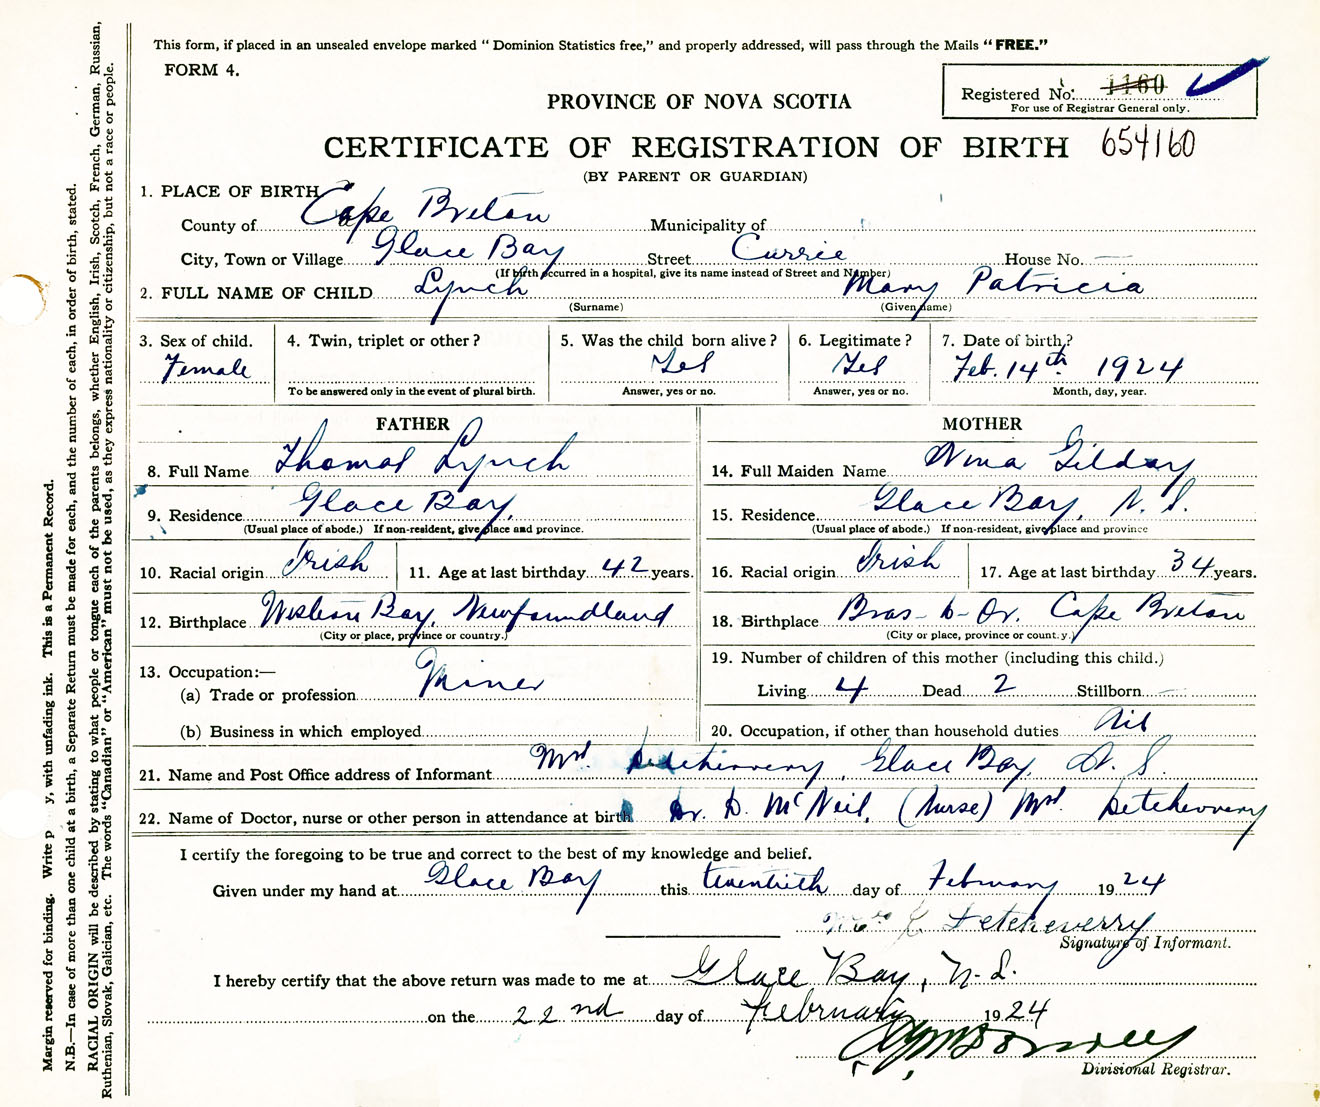 This form, if placed in an unsealed envelope marked “Dominion Statistics free,” and properly addressed, will pass through the Mails “FREE.”
FORM 4.
Registered No. 1160
For use of Registrar General only.
PROVINCE OF NOVA SCOTIA
CERTIFICATE OF REGISTRATION OF BIRTH 654160
(BY PARENT OR GUARDIAN)
1. PLACE OF BIRTH
County of Cape Breton Municipality of
City, Town or Village Glace Bay Street Currie House No. —
(If birth occurred in a hospital, give its name instead of Street and Number)
2. FULL NAME OF CHILD Lynch Mary Patricia
(Surname) (Given name)
3. Sex of child. Female
4. Twin, triplet or other?
To be answered only in the event of plural birth.
5. Was the child born alive? Yes
Answer, yes or no.
6. Legitimate? Yes
Answer, yes or no.
7. Date of birth? Feb. 14th 1924
Month, day, year.
FATHER
8. Full Name Thomas Lynch
9. Residence Glace Bay,
(Usual place of abode.) If non-resident, give place and province.
10. Racial origin Irish 11. Age at last birthday 42 years.
12. Birthplace Bay, Newfoundland
(City or place, province or country.)
13. Occupation:—
(a) Trade or profession Miner
(b) Business in which employed
MOTHER
14. Full Maiden Name Nina Gilday
15. Residence Glace Bay, N. S.
(Usual place of abode.) If non-resident, give place and province
16. Racial origin Irish 17. Age at last birthday 34 years.
18. Birthplace Bras-d-Or. Cape Breton
(City or place, province or country.)
19. Number of children of this mother (including this child.)
Living 4 Dead 2 Stillborn —
20. Occupation, if other than household duties Nil
21. Name and Post Office address of Informant Mrs Detcheverry, Glace Bay, N. S.
22. Name of Doctor, nurse or other person in attendance at birth Dr. D. McNeil, (Nurse) Mrs Detcheverry
I certify the foregoing to be true and correct to the best of my knowledge and belief.
Given under my hand at Glace Bay this twentieth day of February 1924
Mrs E Detcheverry
Signature of Informant.
I hereby certify that the above return was made to me at Glace Bay, N.S.
on the 22nd day of February 1924
Divisional Registrar.
Margin reserved for binding. Write p y, with unfading ink. This is a Permanent Record.
N.B.—In case of more than one child at a birth, a Separate Return must be made for each, and the number of each, in order of birth, stated.
RACIAL ORIGIN will be described by stating to what people or tongue each of the parents belongs, whether English, Irish, Scotch, French, German, Russian,
Ruthenian, Slovak, Galician, etc. The words “Canadian” or “American” must not be used, as they express nationality or citizenship, but not a race or people.